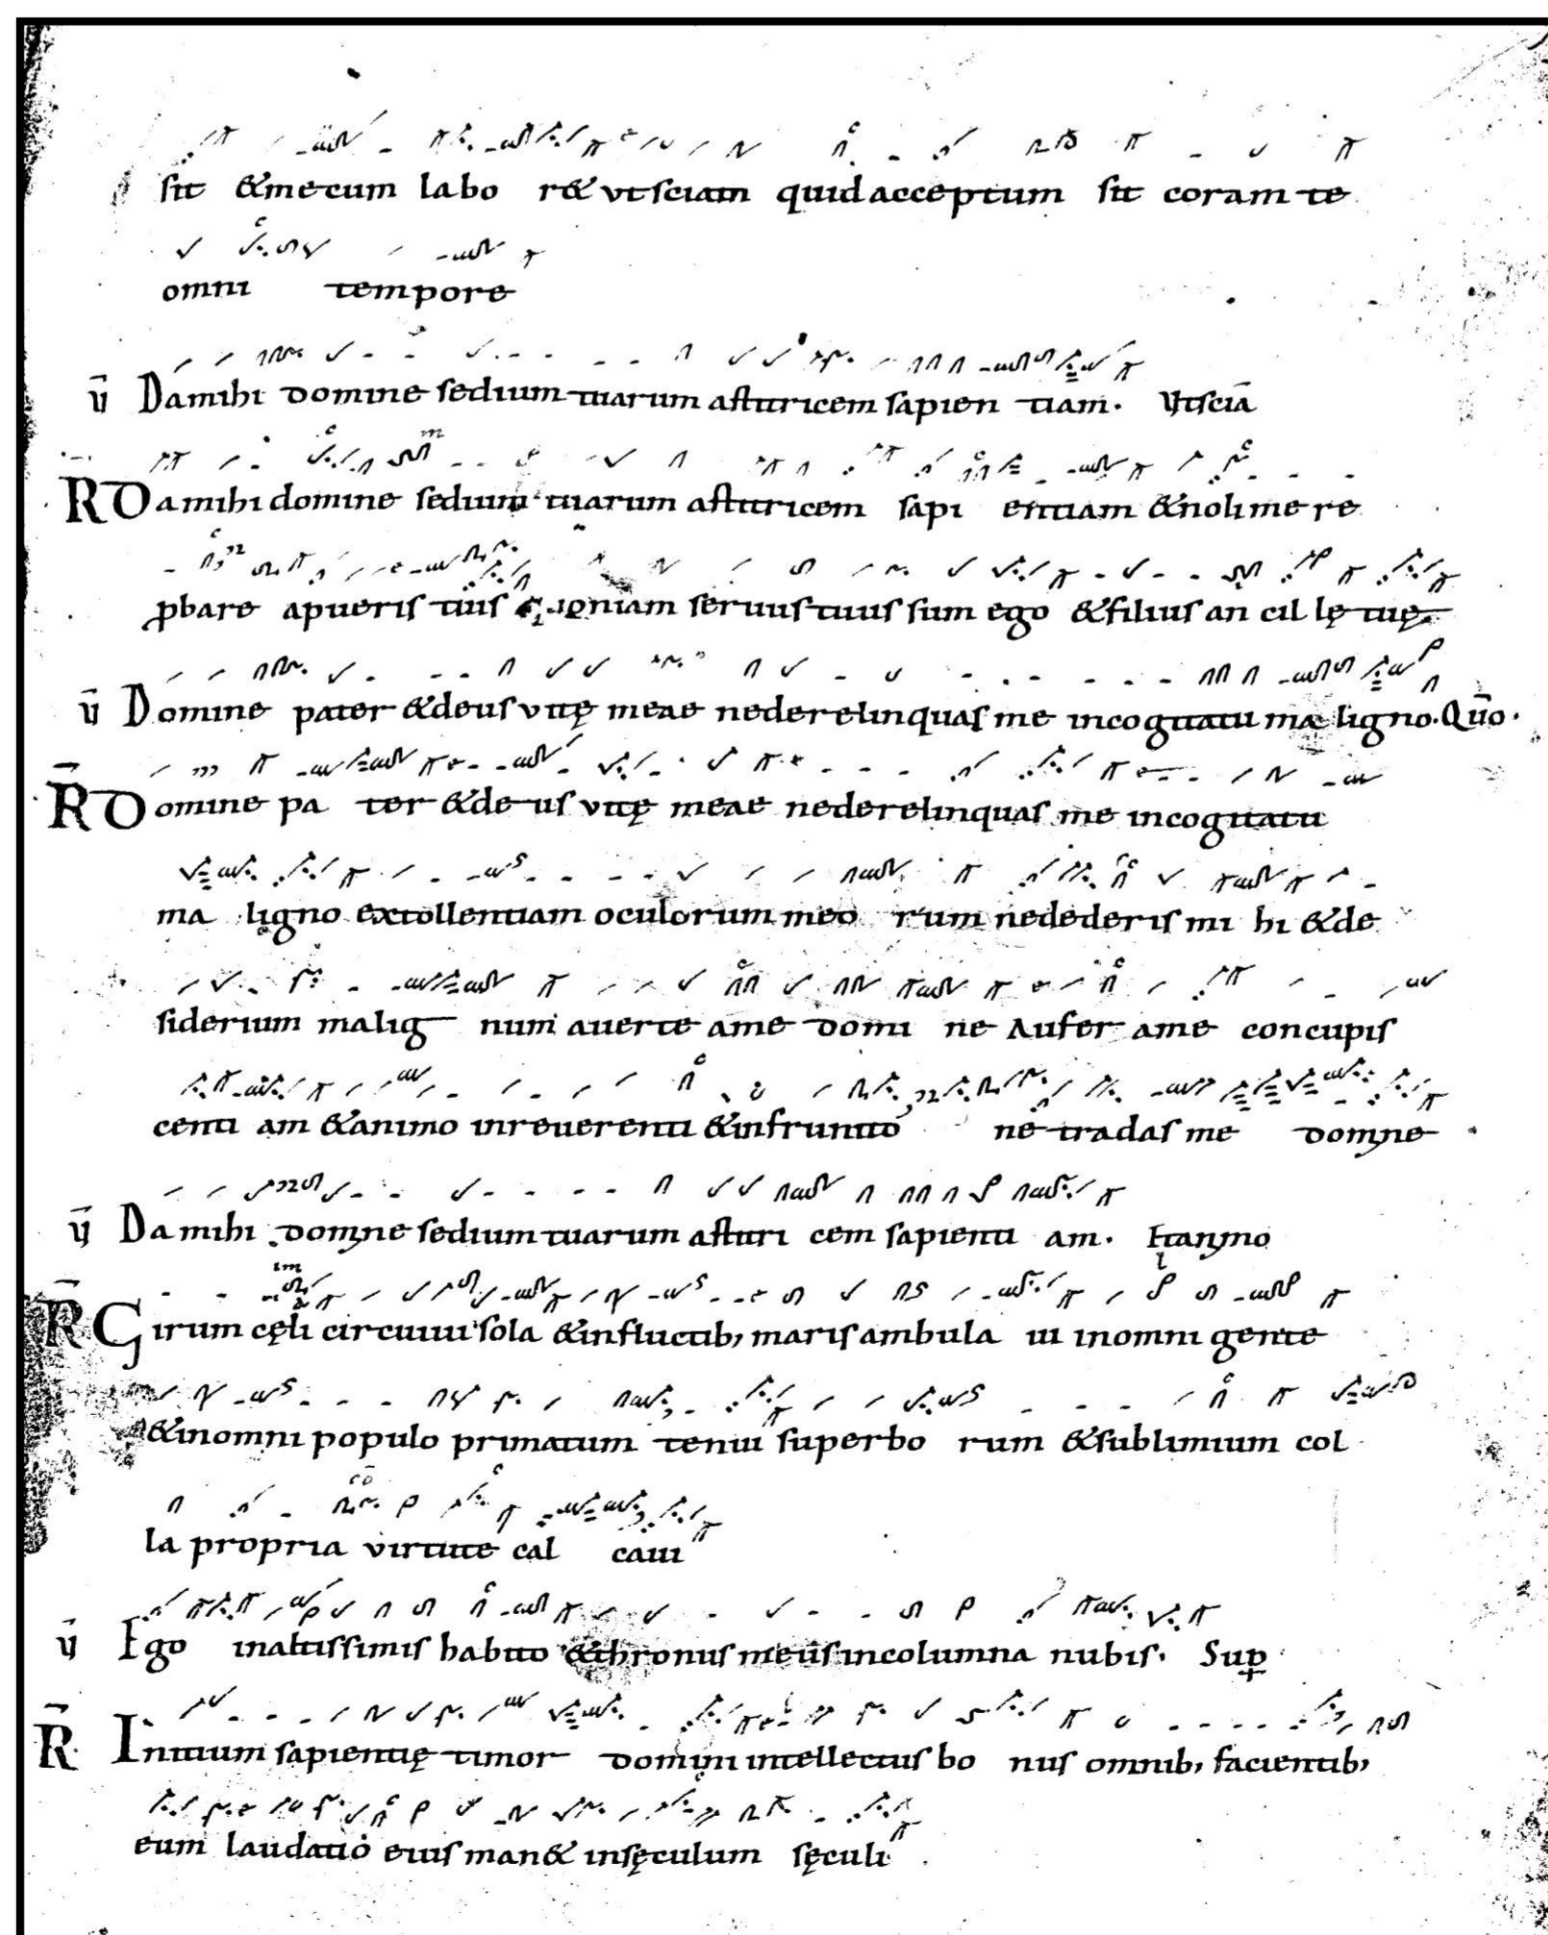 sit &mecum labo r& ut sciam quid acceptum sit coram te
omni tempore
V̄ Da mihi domine sedium tuarum asturicem sapien tiam. Ut sciā
R̄ Da mihi domine sedium tuarum asturicem sapi entiam & noli me re
ꝓbare a pueris tuis quoniam seruus tuus sum ego & filius an cil lę tuę.
V̄ Domine pater & deus vitę meae ne derelinquas me in cogitatu ma ligno. Qūo.
R̄ Domine pa ter & de us vitę meae ne derelinquas me in cogitatu
ma ligno extollentiam oculorum meo rum ne dederis mi hi & de
siderium malig num auerte a me domi ne Aufer a me concupis
centi am & animo inreuerenti & infrunito ne tradas me domine
V̄ Da mihi domine sedium tuarum asturi cem sapienti am. Et animo
R̄ Girum cęli circuiui sola & in fluctib; maris ambula ui in omni gente
& in omni populo primatum tenui superbo rum & sublimium col
la propria virtute cal caui
V̄ Ego in altissimis habito & thronus meus in columna nubis. Suꝑ
R̄ Initium sapientię timor domini intellectus bo nus omnib; facientib;
eum laudatio eius man& in sęculum sęculi.